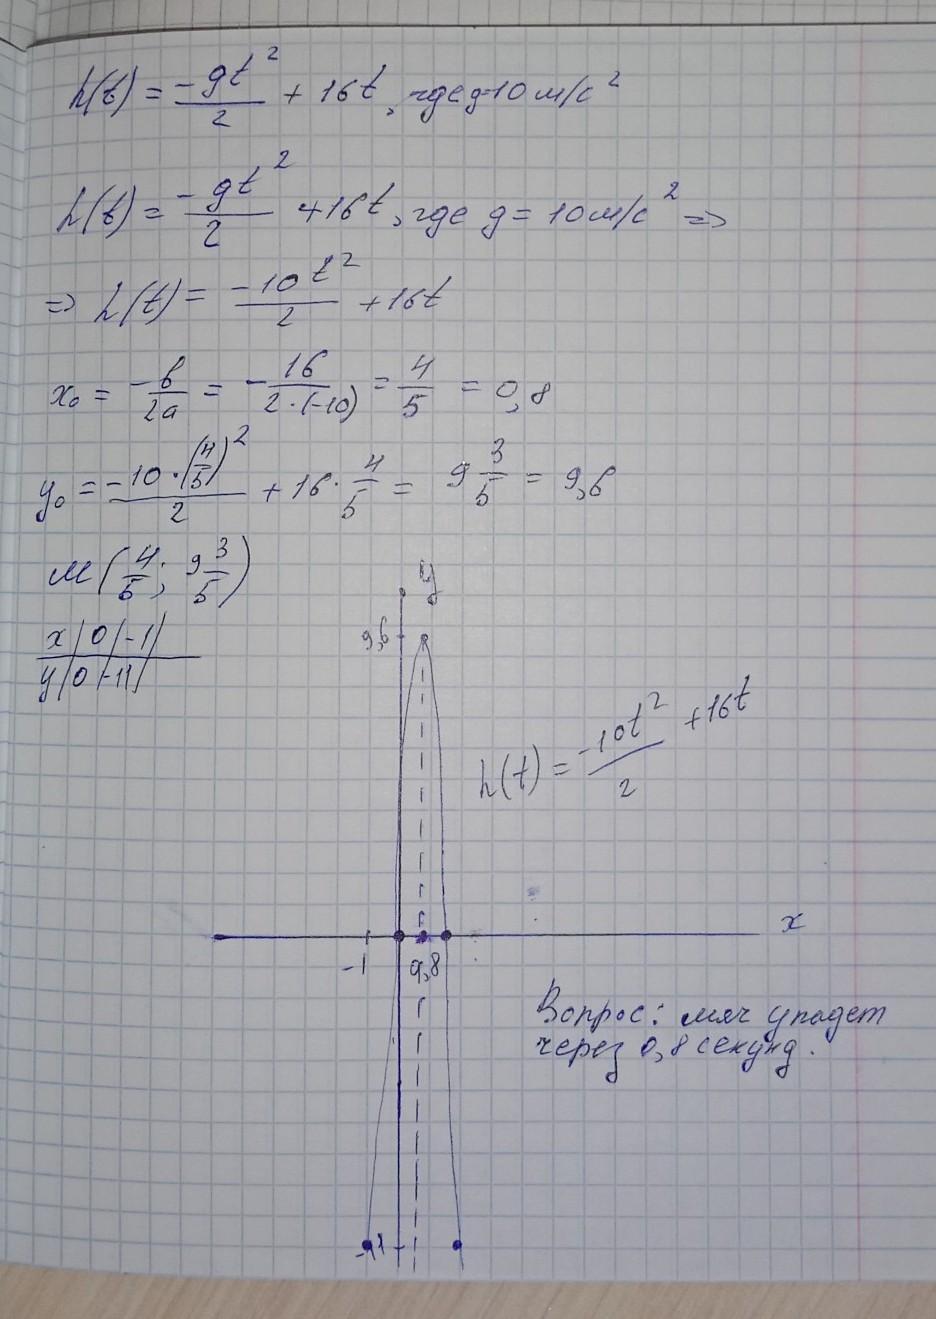 h(t) = -gt²/2 + 16t, где g=10 м/с²
h(t) = -gt²/2 + 16t, где g = 10 м/с² =>
=> h(t) = -10t²/2 + 16t
x₀ = -b/2a = -16/2·(-10) = 4/5 = 0,8
y₀ = -10·(4/5)²/2 + 16·4/5 = 9 3/5 = 9,6
M(4/5; 9 3/5)
x|0|-1|
y|0|-11|
y
9,6
h(t) = -10t²/2 + 16t
x
-1
0,8
Вопрос: мяч упадет
через 0,8 секунд.
-11